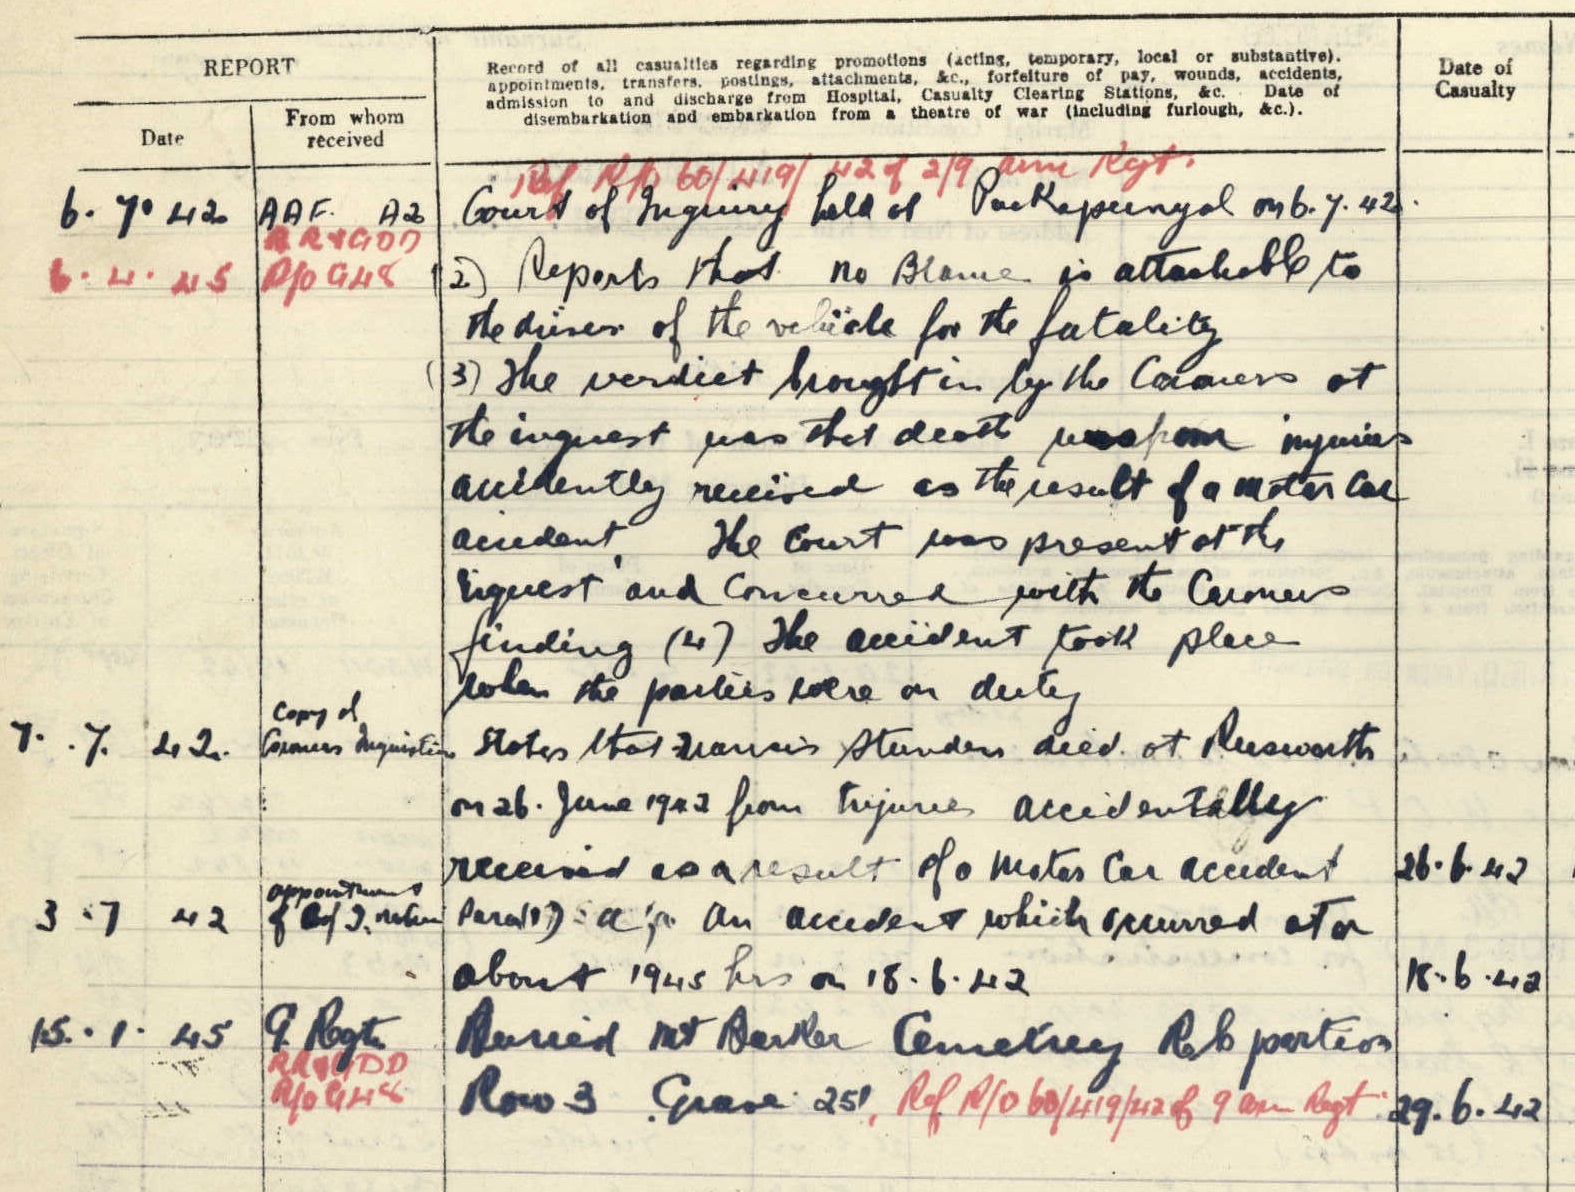 REPORT
Record of all casualties regarding promotions (acting, temporary, local or substantive).
appointments, transfers, postings, attachments, &c., forfeiture of pay, wounds, accidents,
admission to and discharge from Hospital, Casualty Clearing Stations, &c. Date of
disembarkation and embarkation from a theatre of war (including furlough, &c.).
Date of
Casualty
Date
From whom
received
Ref R/O 60/419/42 of 2/9 Arm Regt.
6. 7. 42 AAF. A2 Court of Inquiry held at Puckapunyal on 6.7.42.
RR&GDD
6. 4. 45 R/O G48 (2) Reports that no Blame is attachable to
the driver of the vehicle for the fatality
(3) The verdict brought in by the Coroners at
the inquest was that death was from injuries
accidently received as the result of a motor car
accident. The Court was present at the
Inquest and Concurred with the Coroners
finding (4) The accident took place
when the parties were on duty
7. 7. 42. Copy of
Coroners Inquisition States that Francis died at Rusworth
on 26. June 1942 from injuries accidentally
received as a result of a motor Car accident 26.6.42
3 .7 42 appointment
of Para (1) An accident which occurred at or
about 1945 hrs on 18.6.42 18.6.42
15. 1. 45 9 Regt Buried Mt Barker Cemetrey portion
RR&GDD
R/o G48 Row 3 Grave 251. Ref R/O 60/419/42 of 9 Arm Regt 29.6.42